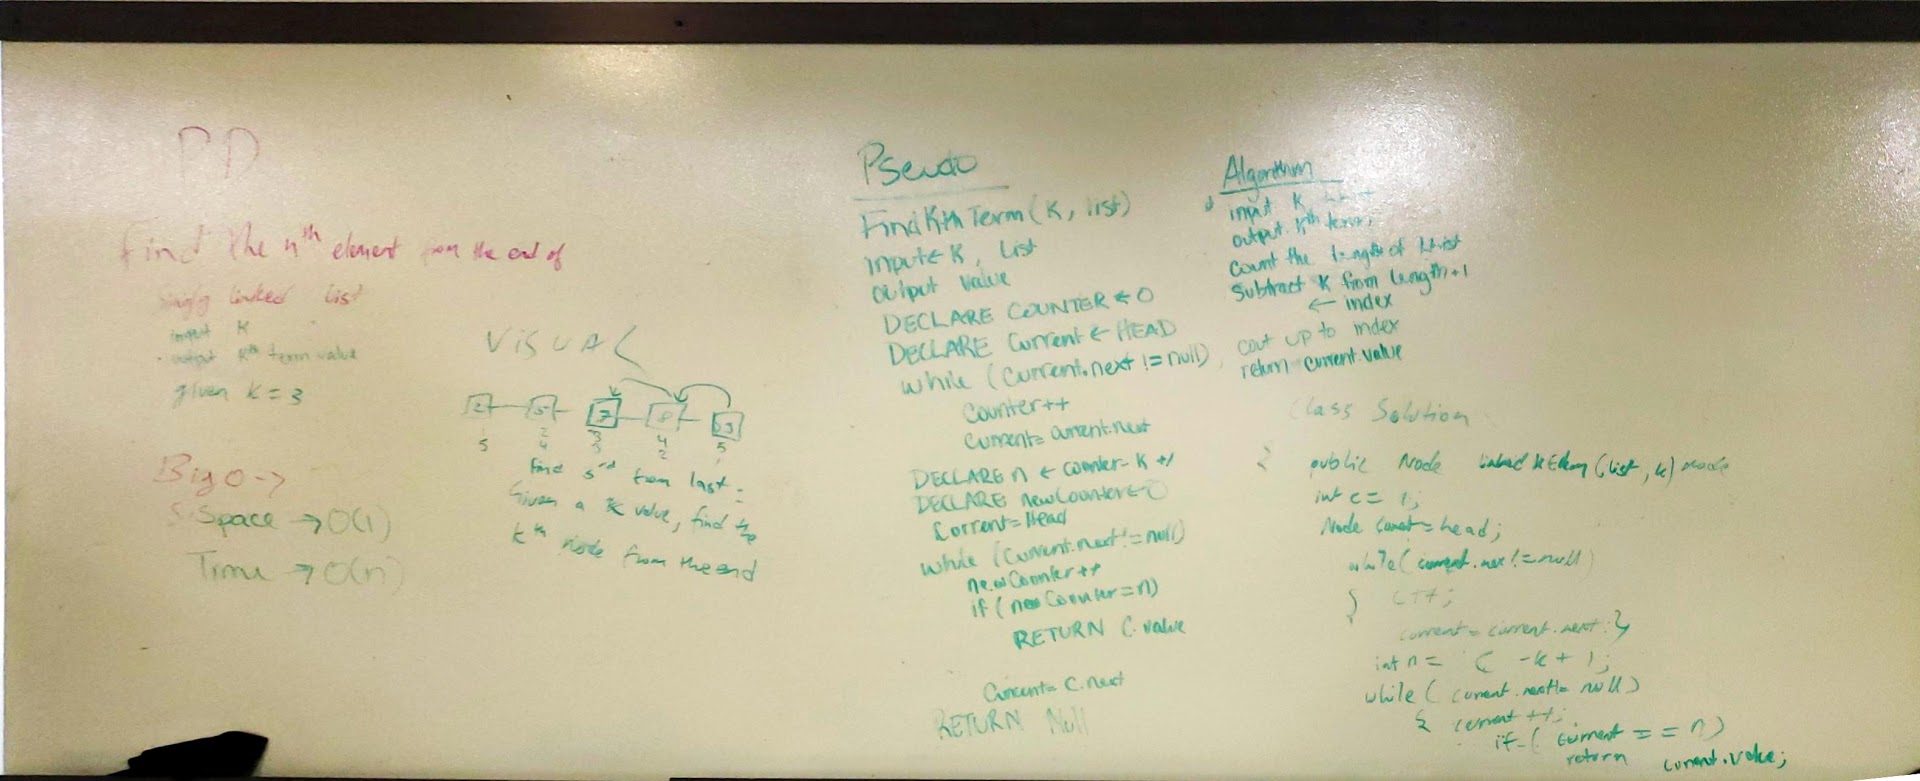 PD
Find the nth element from the end of
Singly linked list
input K
output Kth term value
given k = 3
Big O ->
Space -> O(1)
Time -> O(n)
VISUAL
2 5 7
5 2 3 4 5
4 3 2 1
Find 3rd from last =
Given a K value, find the
kth node from the end
Pseudo
Find Kth Term (K, list)
Input ← K, List
Output Value
DECLARE COUNTER ← 0
DECLARE Current ← HEAD
while (Current.next != null)
Counter++
Current = current.next
DECLARE n ← counter - K + 1
DECLARE newCounter ← 0
Current = Head
while (Current.next != null)
newCounter++
if (newCounter = n)
RETURN C.value
Current = C.next
RETURN Null
Algorithm
input K
output Kth term,
Count the length of
Subtract K from length + 1
← index
cout up to index
return current.value
Class Solution
{ public Node (list, k) node
int c = 1;
Node = head;
while (current.next != null)
{ C++;
current = current.next; }
int n = C - k + 1;
while (current.next != null)
{ current ++;
if (current == n)
return current.value;